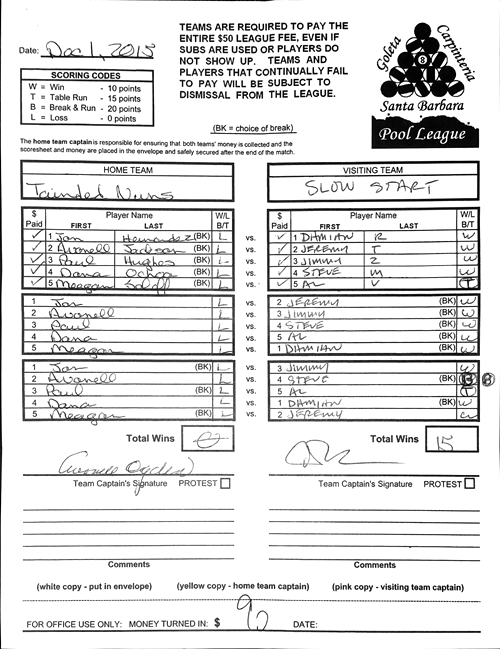 Date: Dec 1, 2015
TEAMS ARE REQUIRED TO PAY THE
ENTIRE $50 LEAGUE FEE, EVEN IF
SUBS ARE USED OR PLAYERS DO
NOT SHOW UP. TEAMS AND
PLAYERS THAT CONTINUALLY FAIL
TO PAY WILL BE SUBJECT TO
DISMISSAL FROM THE LEAGUE.
(BK = choice of break)
SCORING CODES
W = Win - 10 points
T = Table Run - 15 points
B = Break & Run - 20 points
L = Loss - 0 points
Goleta Carpinteria
8
Santa Barbara
Pool League
The home team captain is responsible for ensuring that both teams' money is collected and the
scoresheet and money are placed in the envelope and safely secured after the end of the match.
HOME TEAM
Tainded Nuns
VISITING TEAM
SLOW START
$ Paid Player Name FIRST LAST W/L B/T
$ Paid Player Name FIRST LAST W/L B/T
✓ 1 Jan Hernandez (BK) L vs. ✓ 1 DAMIAN R W
✓ 2 Avonell Jackson (BK) L vs. ✓ 2 JEREMY T W
✓ 3 Paul Hughes (BK) L vs. ✓ 3 JIMMY Z W
✓ 4 Dana Ochoa (BK) L vs. ✓ 4 STEVE M W
✓ 5 Meagan (BK) L vs. ✓ 5 AL V T
1 Jan L vs. 2 JEREMY (BK) W
2 Avonell L vs. 3 JIMMY (BK) W
3 Paul L vs. 4 STEVE (BK) W
4 Dana L vs. 5 AL (BK) W
5 Meagan L vs. 1 DAMIAN (BK) W
1 Jan (BK) L vs. 3 JIMMY W
2 Avonell L vs. 4 STEVE (BK) B
3 Paul (BK) L vs. 5 AL T
4 Dana L vs. 1 DAMIAN (BK) W
5 Meagan (BK) L vs. 2 JEREMY W
Total Wins 0
Total Wins 15
Team Captain's Signature PROTEST
Team Captain's Signature PROTEST
Comments
Comments
(white copy - put in envelope) (yellow copy - home team captain) (pink copy - visiting team captain)
FOR OFFICE USE ONLY: MONEY TURNED IN: $ 90 DATE: